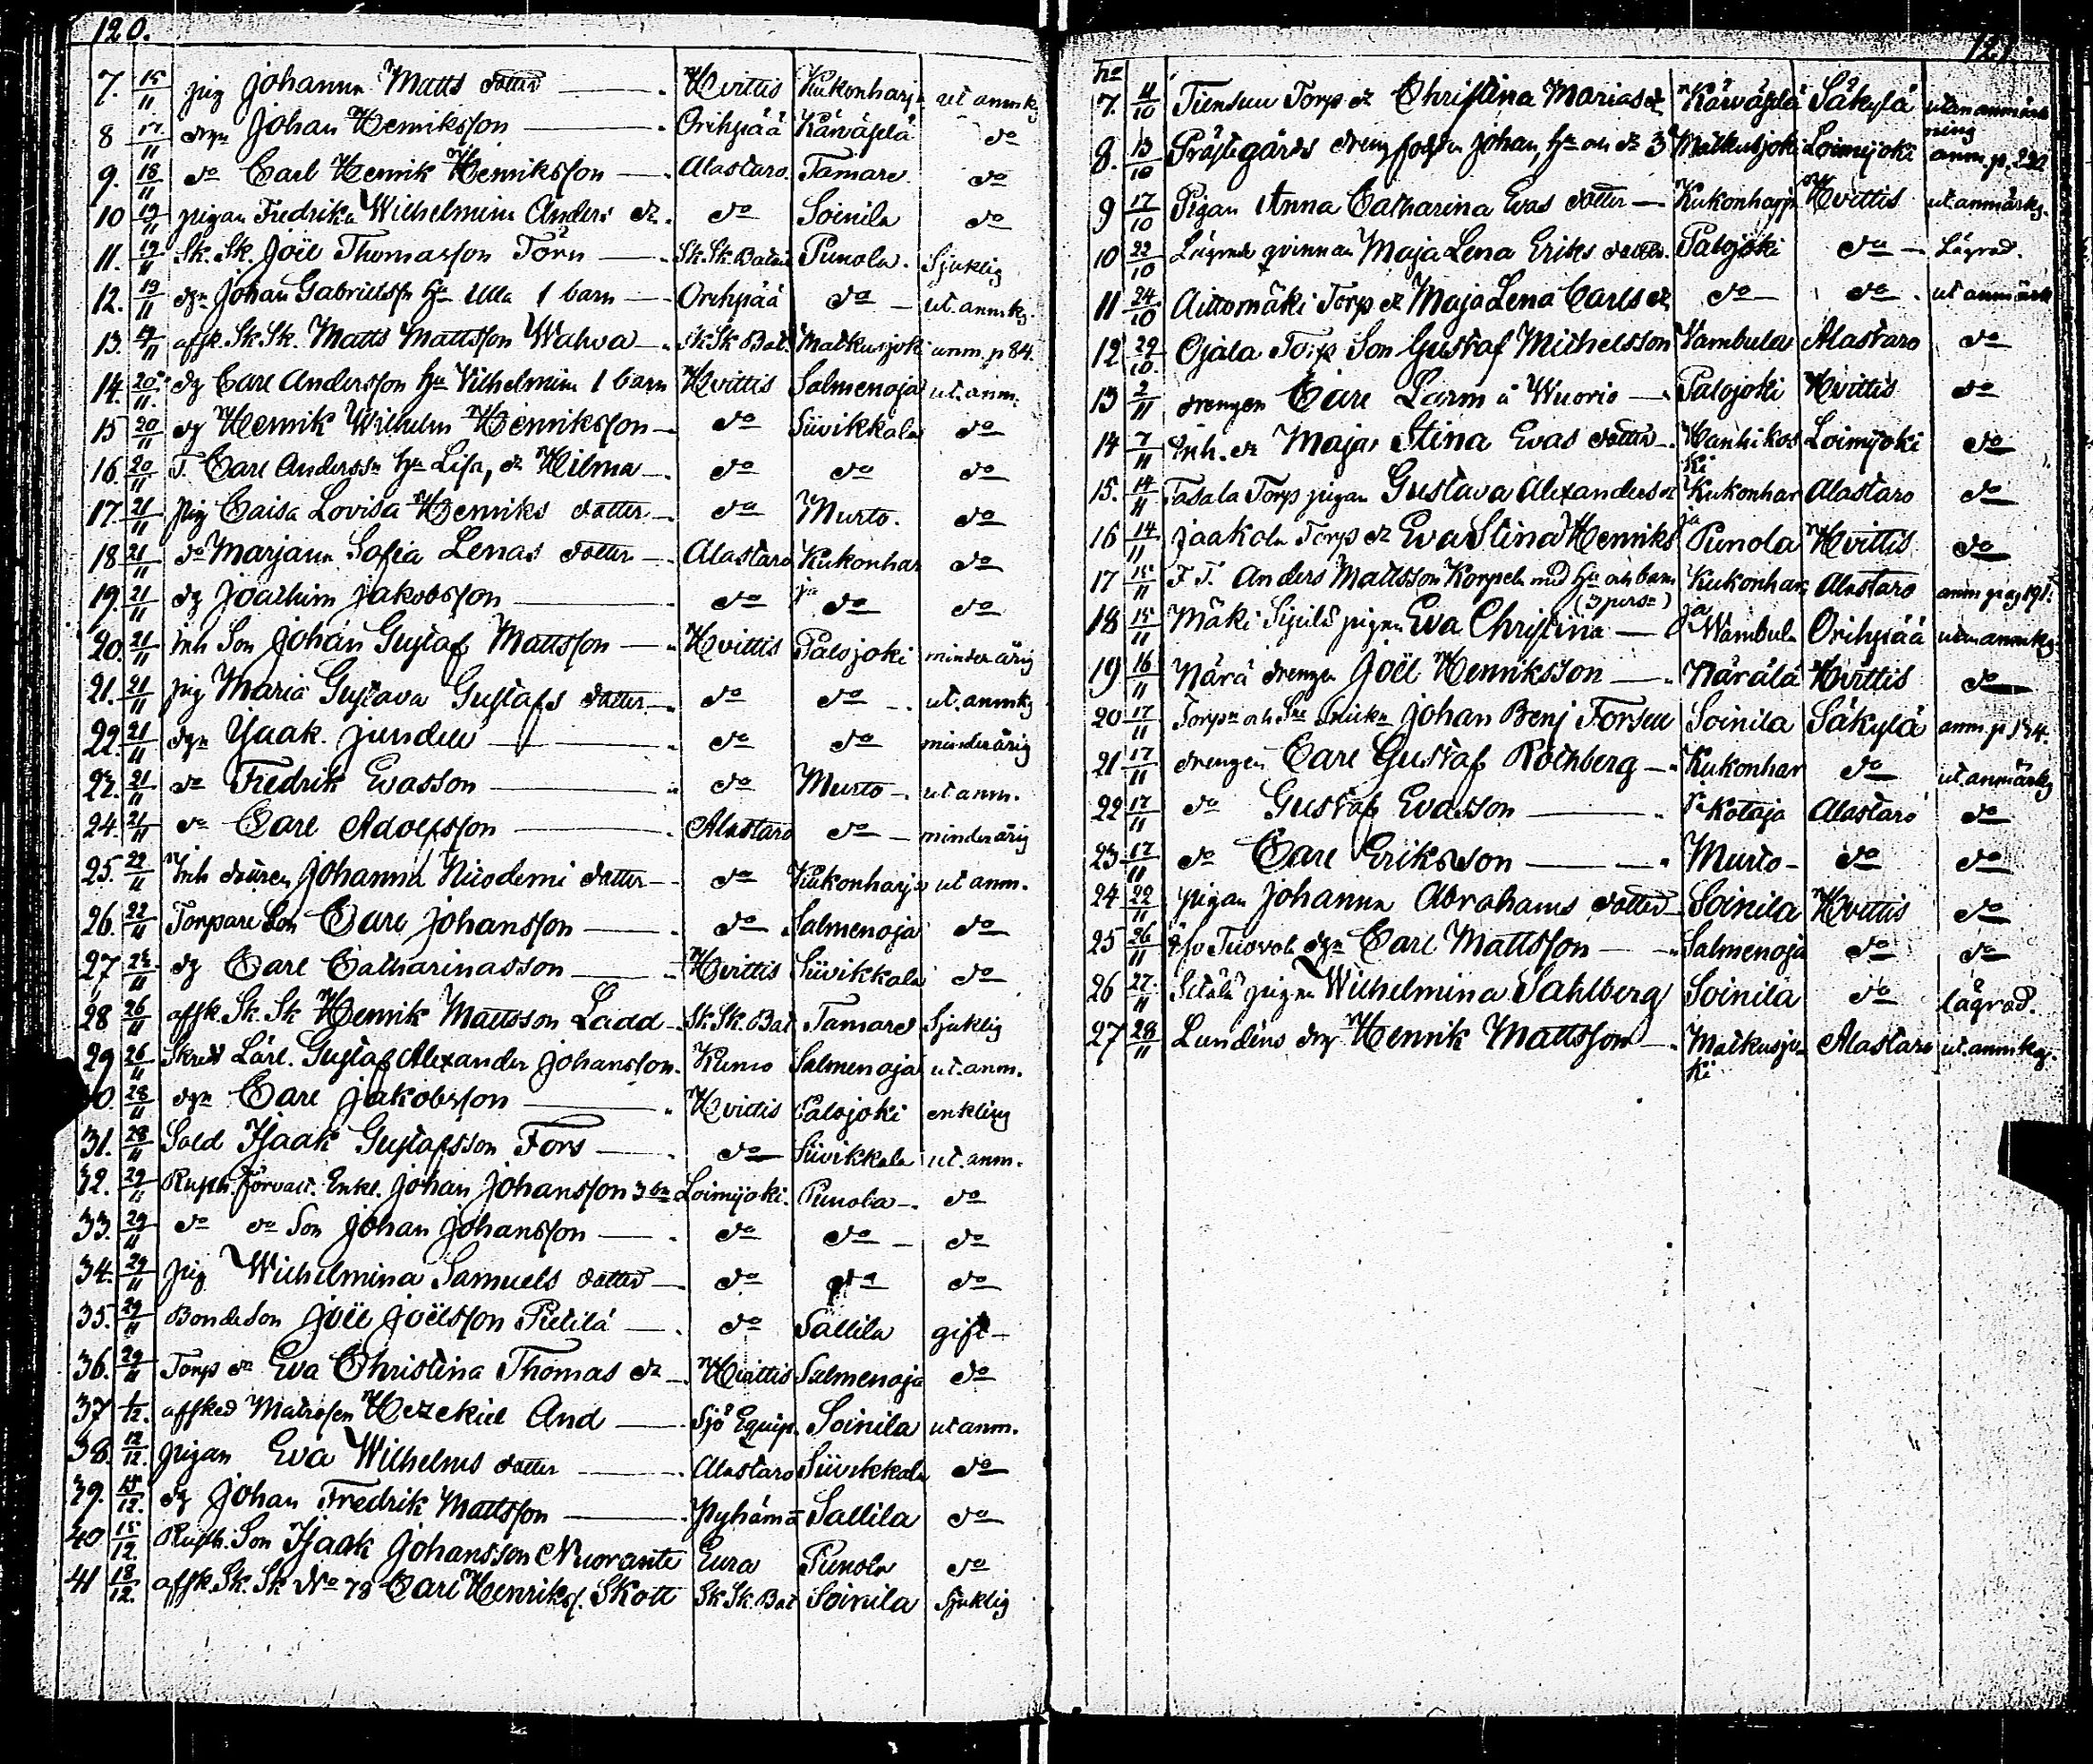 120.
7. 15/11 pig Johanna Matts dotter — Hvittis Kukonharja ut anmkg
8 17/11 drgn Johan Henriksson — Orihpää Käwäjelä do
9. 18/11 do Carl Henrik Henriksson — Alastaro. Tamare. do
10 19/11 pigan Fredrika Wilhelmina Anders dr. do Soinila do
11. 19/11 Sk. Sk. Joël Thomasson Törn — Sk. Sk. Bataii Punola. Sjuklig
12. 19/11 dgn Johan Gabrielssn hu Ulla 1 barn — Orihpää do — ut. anmkg.
13. 19/11 affk. Sk Sk. Matts Mattsson Wahva — Sk Sk Bat. Matkusjoki anm. p 84.
14. 20/11. dg Carl Andersson hu Vilhelmina 1 barn Hvittis Salmenoja ut. anm.
15 20/11 dg Henrik Wilhelm Henriksson — do Siivikkala do
16. 20/11 T. Carl Anderssn hu Lisa, dr Hilma — do do do
17. 21/11 pig Caisa Lovisa Henriks dotter — do Murto. do
18 21/11 do Marjana Sofia Lenas dotter — Alastaro Kukonhar do
ja
19. 21/11 dg Joachim Jakobsson — do do do
20. 21/11 inh Son Johan Gustaf Mattsson — Hvittis Palojoki minderårig
21. 21/11 pig Maria Gustava Gustafs dotter — do do — ut. anmkg
22. 21/11 dgn Isaak Jundell — do do minderårig
23. 21/11 do Fredrik Evasson — do Murto — ut anm.
24. 21/11 do Carl Adolfsson — Alastaro do — minderårig
25. 22/11 Inh Johanna Nicodemi dotter — do Kukonharja ut anm.
26. 22/11 Torpare Son Carl Johansson — do Salmenoja do
27 dg Carl Catharinasson — Hvittis Siivikkala do
28 26/11 affk. Sk. Sk Henrik Mattsson Ladd — Sk. Sk. Bat Tamare Sjuklig
29 26/11 Skredd Lärl. Gustaf Alexander Johansson. Kumo Salmenoja ut. anm.
30. 28/11 dgn Carl Jakobsson — Hvittis Palojoki enkling
31. 28/11 Sold Isaak Gustafsson Fors — do Siivikkala ut. anm.
32. 29/11 Rusth. förvalt. Enkl. Johan Johansson 3 bn Loimijoki. Punola —. do
33. 29/11 do do Son Johan Johansson — do do — do
34. 29/11 pig Wilhelmina Samuels dotter — do do do
35. 29/11 Bonde Son Joël Joëlsson Pietilä — do Sallila gift —
36. 29/11 Torp dr Eva Christina Thomas dr — Hvittis Salmenoja do
37 1/12. affked Matrosen Hezekiel And — Sjö Equip. Soinila ut anm.
38. 12/12. pigan Eva Wilhelms dotter — Alastaro Siivikkala do
39. 15/12. dg Johan Fredrik Mattsson — Pyhämä Sallila do
40 15/12. Rusth. Son Isaak Johansson Nuorante Eura Punola do
41 18/12. affk. Sk. Sk No 78 Carl Henrikss. Skott Sk Sk. Bat Soinila Sjuklig
121
No
7. 11/10 Tiensuu Torp dr Christina Marias dr Käwäjelä Säkylä utan anmärk
ning
8. 13/10 Prästegårds dreng Johan, hu och dr 3 Matkusjoki Loimijoki anm. p. 222
9 17/10 Pigan Anna Catharina Evas dotter — Kukonharja Hvittis ut anmärkg.
10 22/10 Lägrade qvinnan Maja Lena Eriks dotter. Palojoki do — Lägrad.
11 24/10 Aittomäki Torp dr Maja Lena Carls dr do do. ut anmärk
12 29/10. Ojala Torp Son Gustaf Michelsson Vambula Alastaro do
13 2/11 drengen Carl Larm å Wuorio — Palojoki Hvittis do
14 7/11 Inh. dr Maja Stina Evas dotter — Hanhikos Loimijoki do
ki
15. 14/11 Tasala Torp pigan Gustava Alexanders dr Kukonhar Alastaro do
ja
16 14/11 Jaakola Torp dr Eva Stina Henriks Punola Hvittis do
17 15/11 F. T. Anders Mattsson Korpela med hu och barn Kukonhar Alastaro anm pag 191.
(3 perso) ja
18 15/11 Mäki Sipilä pigan Eva Christina — Wambula Orihpää utan anmkg.
19 16/11 Närä drengen Joël Henriksson — Närälä Hvittis do
20 17/11 Torpn och Snickn Johan Benj Forsell Soinila Säkylä anm. p 134.
21 17/11 drengen Carl Gustaf Rothberg — Kukonhar do ut anmärkg
ja
22 17/11 do Gustaf Evasson — Kataja Alastaro do
23 17/11 do Carl Eriksson — Murto — do do
24 22/11 pigan Johanna Abrahams dotter — Soinila Hvittis do
25 26/11 Tuovola dgn Carl Mattsson — Salmenoja do do
26 27/11 Setälä pigan Wilhelmina Sahlberg Soinila do lägrad.
27 28/11 Lundéns drg Henrik Mattsson — Matkusjo- Alastaro ut. anmkg.
ki